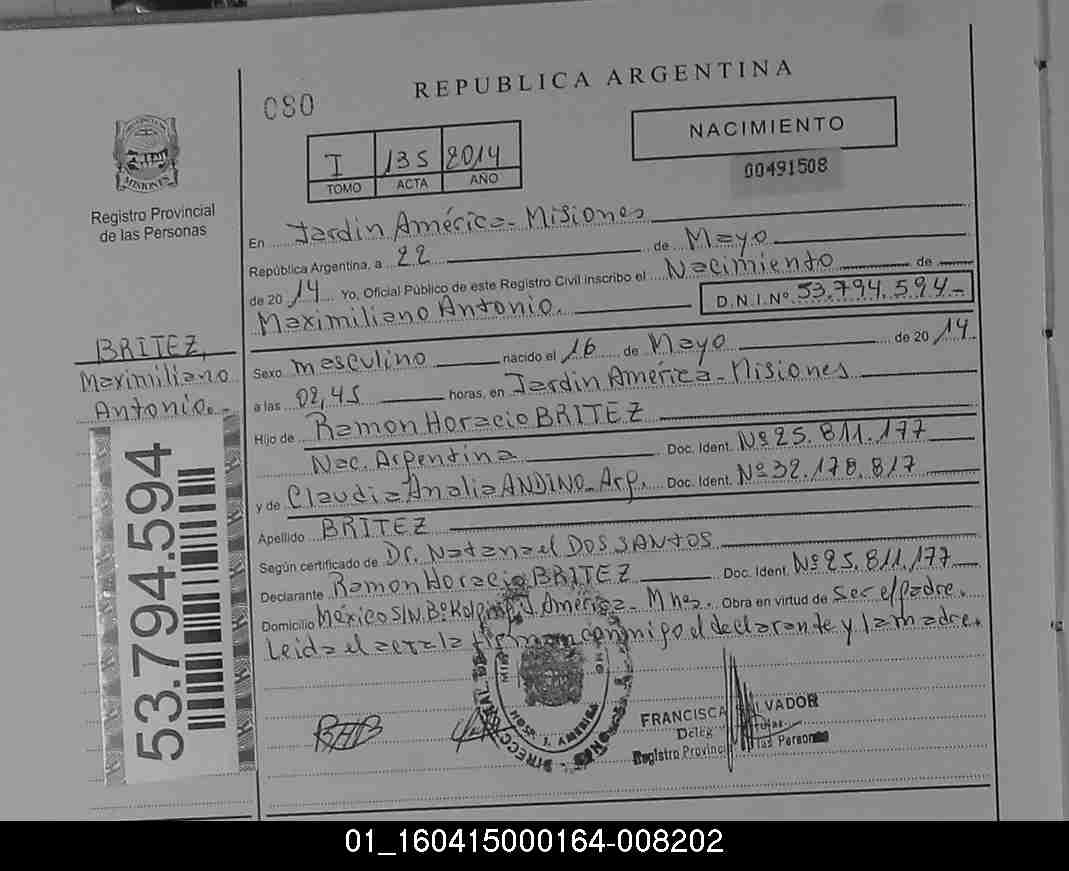 REPUBLICA ARGENTINA
080
NACIMIENTO
00491508
I 135 2014
TOMO ACTA AÑO
MISIONES
Registro Provincial
de las Personas
En Jardin América - Misiones
República Argentina, a 22 de Mayo
de 2014 Yo, Oficial Público de este Registro Civil inscribo el Nacimiento de
Maximiliano Antonio. D.N.I.Nº 53.794.594-
BRITEZ,
Maximiliano
Antonio.-
53.794.594
Sexo masculino nacido el 16 de Mayo de 2014
a las 02,45 horas, en Jardin America - Misiones
Hijo de Ramon Horacio BRITEZ
Nac. Argentina Doc. Ident. Nº 25.811.177
y de Claudia Analia ANDINO - Arg. Doc. Ident. Nº 32.178.817
Apellido BRITEZ
Según certificado de Dr. Natanael DOS SANTOS
Declarante Ramon Horacio BRITEZ Doc. Ident. Nº 25.811.177
Domicilio México S/N. Bº J. América - Mnes. Obra en virtud de ser el padre.
Leida el acta la firman conmigo el declarante y la madre.
HOSP. J. AMERICA
FRANCISCA LVADOR
Deleg
Registro Provinc las Personas
01_160415000164-008202